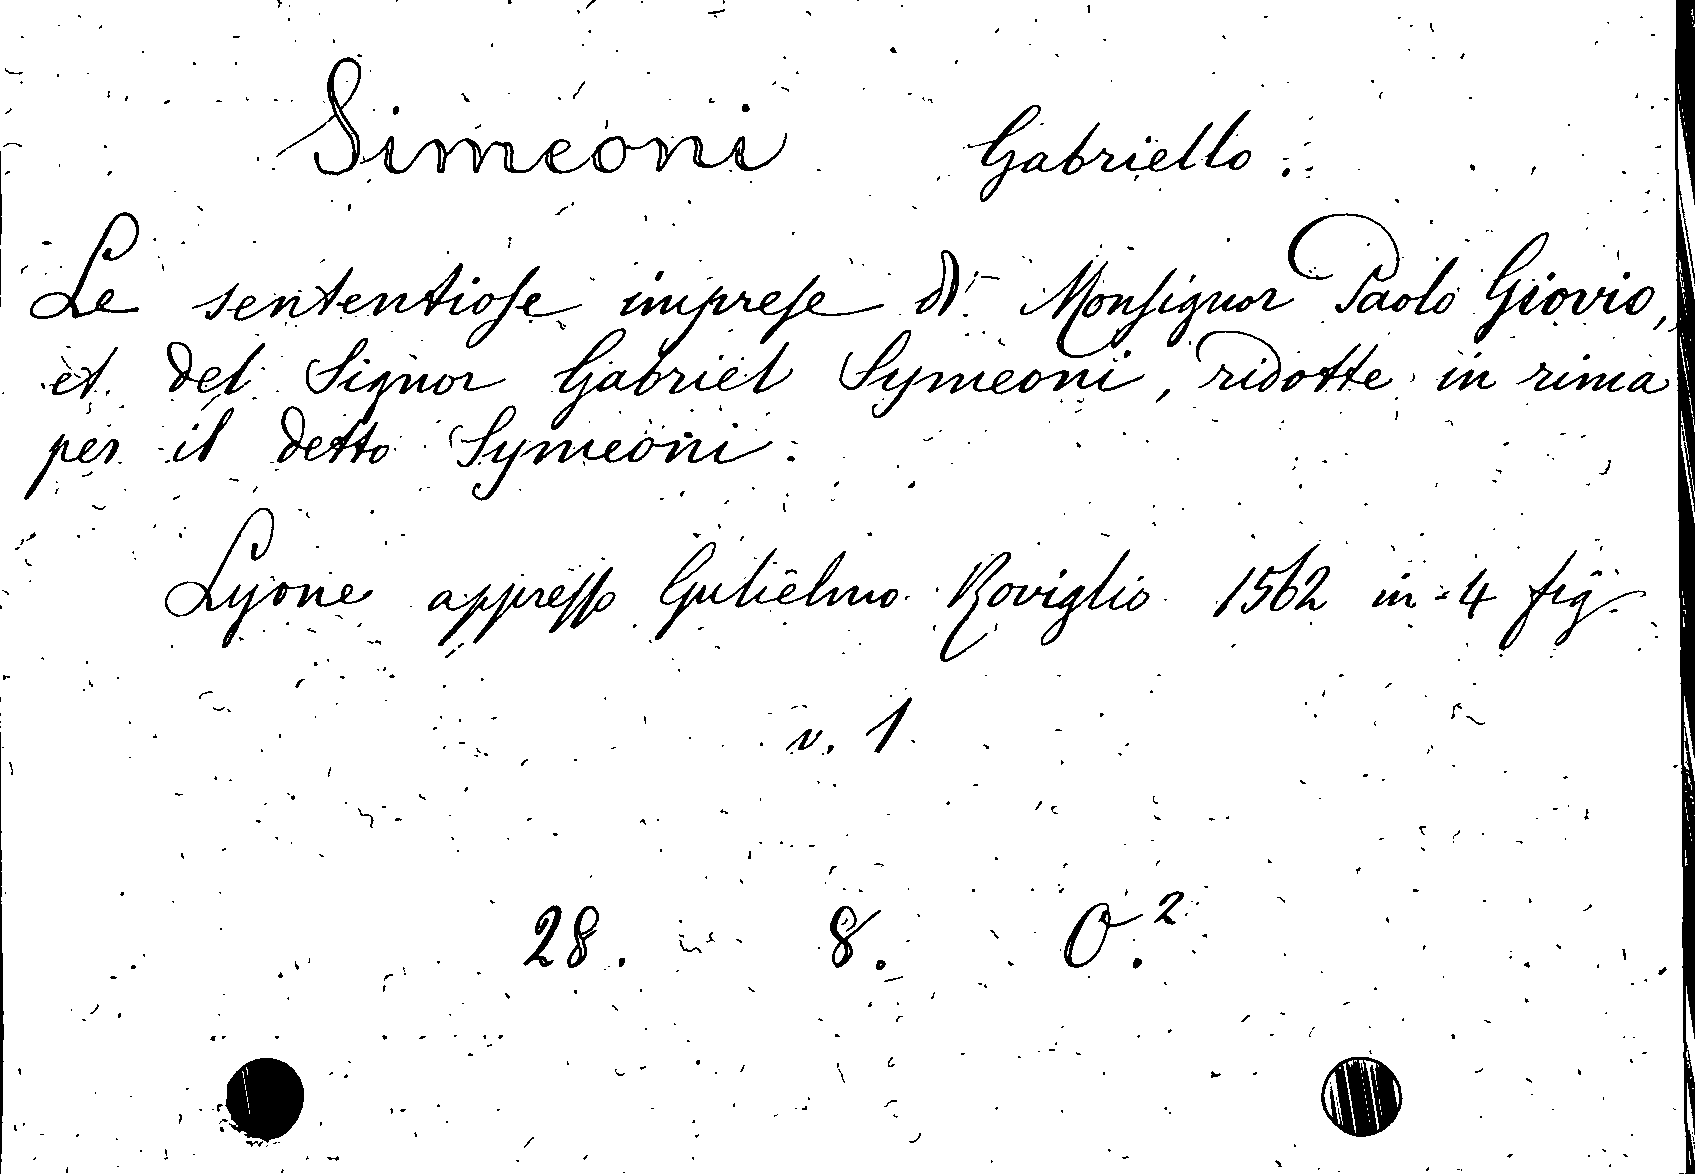 Simeoni Gabriello.
Le sententiose imprese di Monsignor Paolo Giovio,
et del Signor Gabriel Symeoni, ridotte in rima
per il detto Symeoni.
Lyone appresso Gulielmo Roviglio 1562 in-4 fig.
v. 1
28. 8. O.²